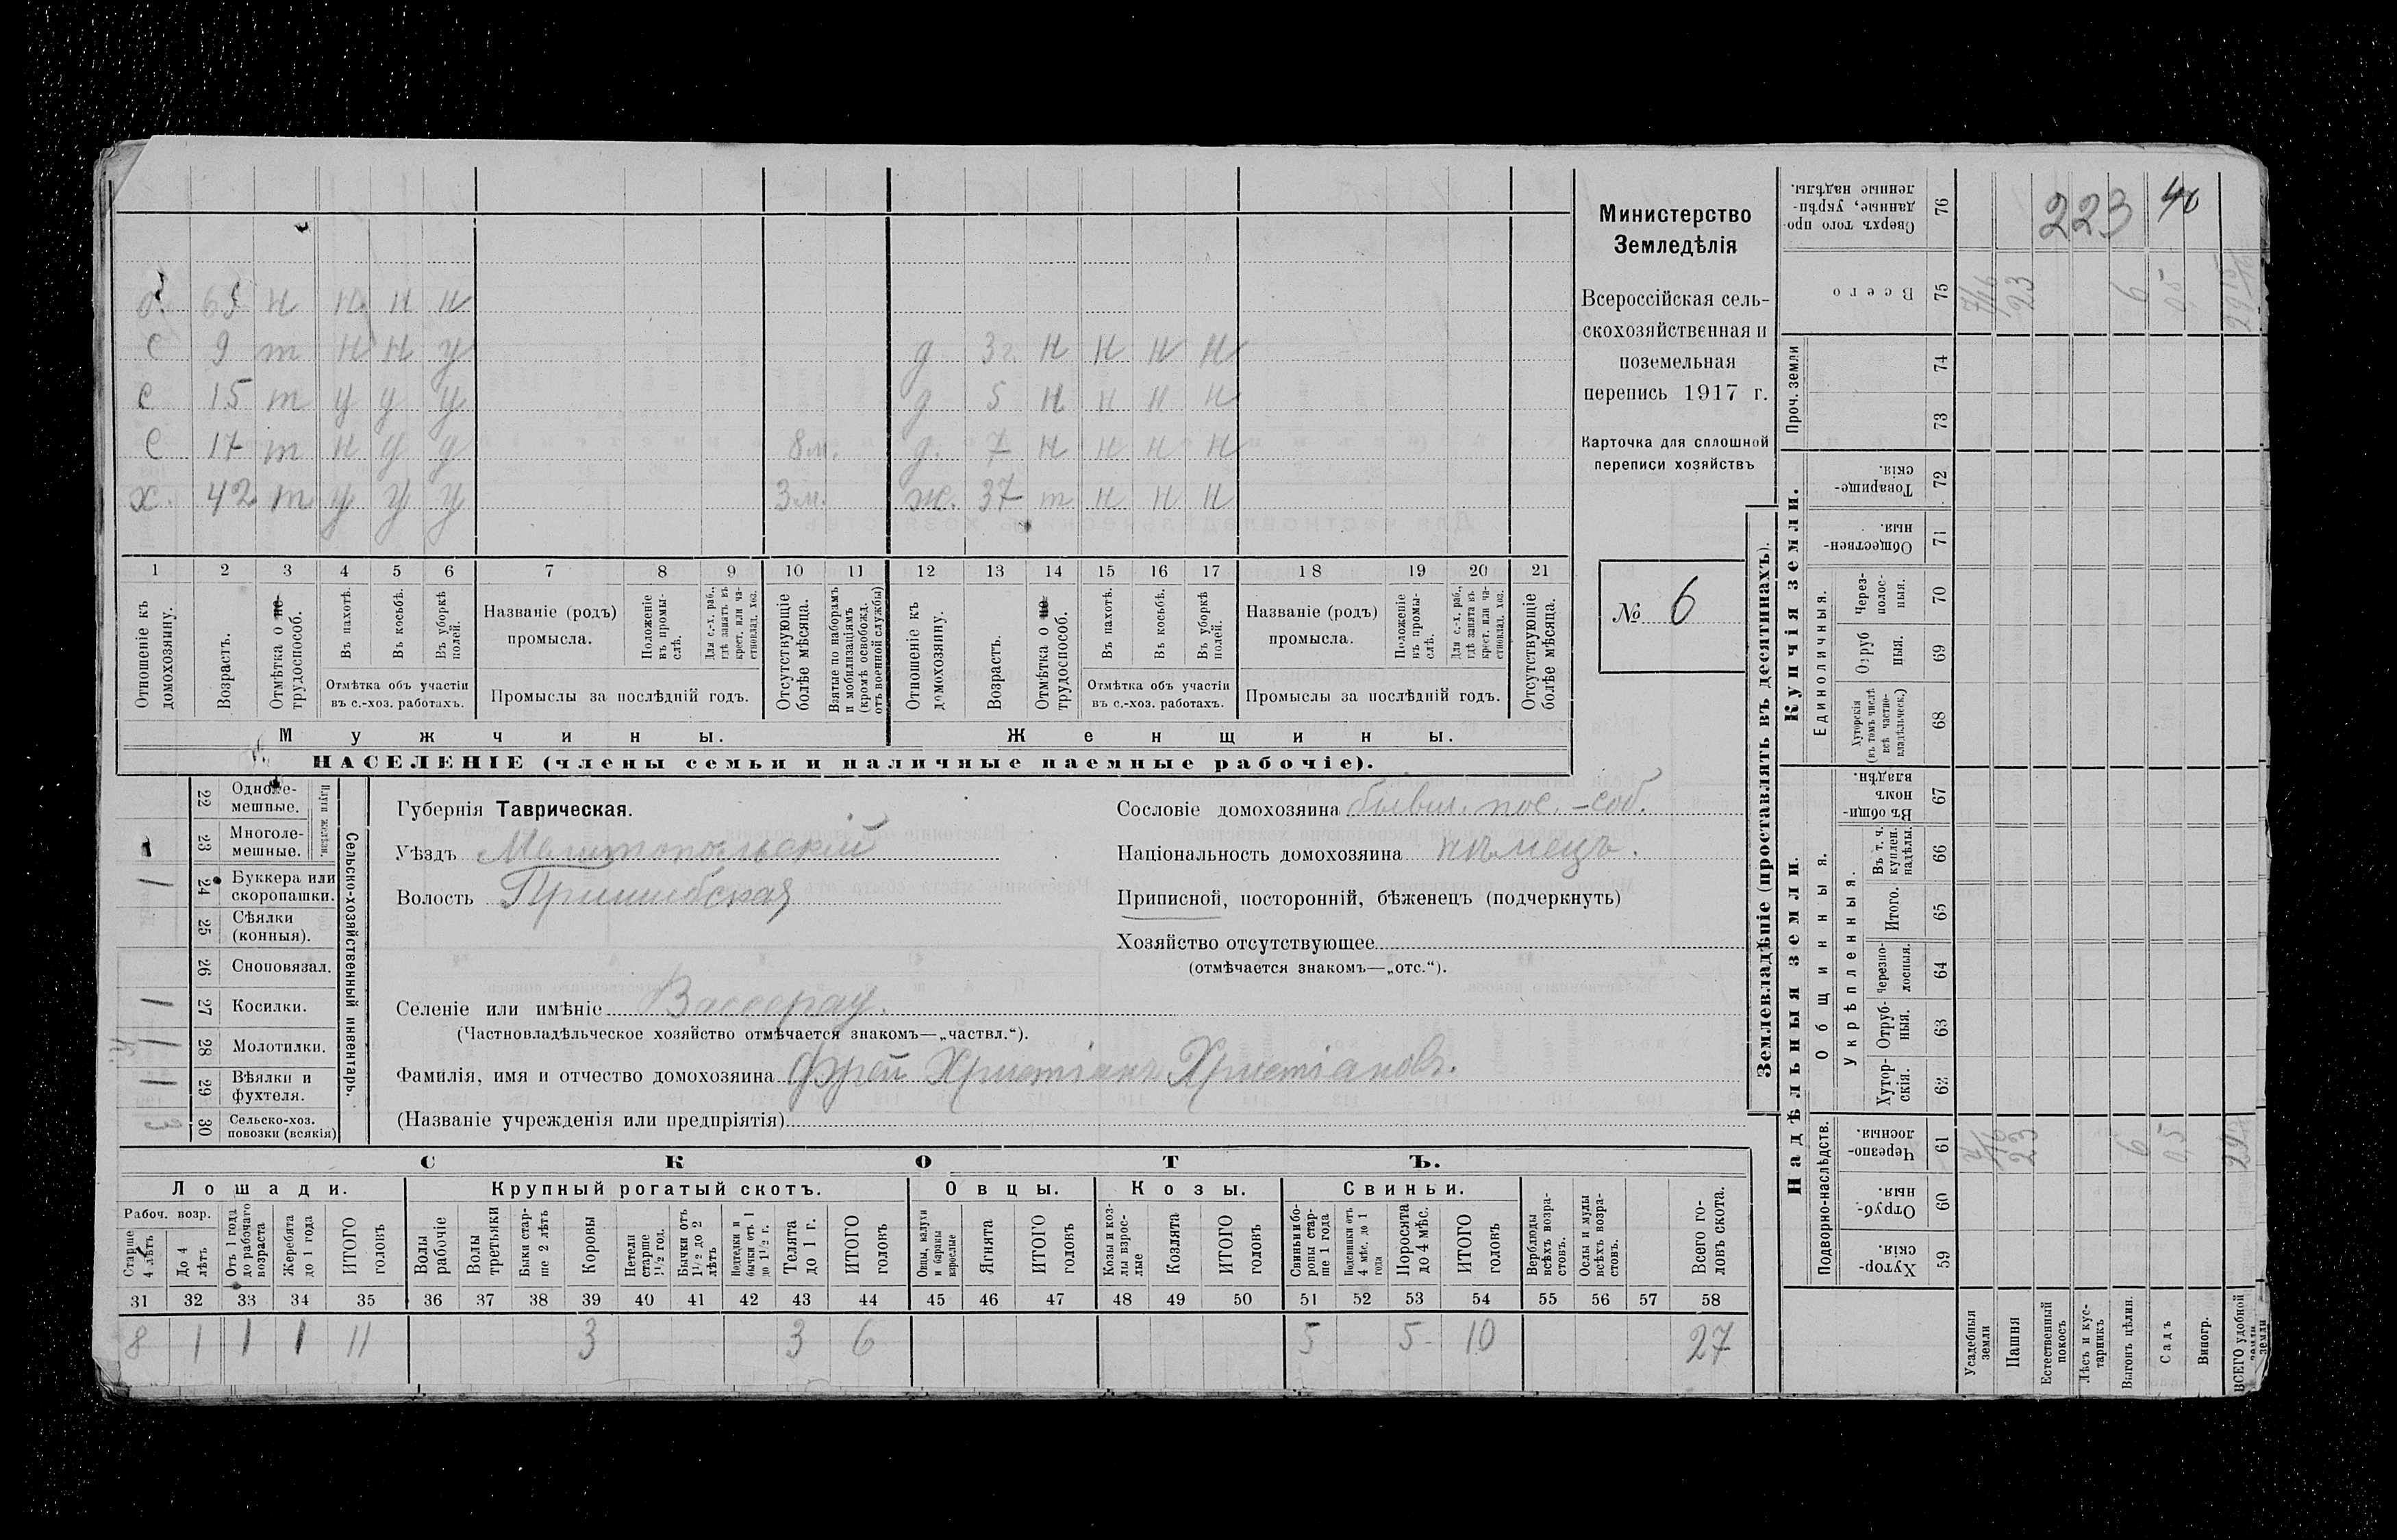 о. 65 н н н н
с 9 т н н у
д. 3 г. н н н н
с 15 т у у у
д 5 н н н н
с 17 т н у у
8 м.
д. 7 н н н н
х. 42 т у у у
3 м.
ж. 37 т н н н
1 2 3 4 5 6 7 8 9 10 11 12 13 14 15 16 17 18 19 20 21
Отношеніе къ домохозяину.
Возрастъ.
Отмѣтка о не-трудоспособ.
Въ пахотѣ.
Въ косьбѣ.
Въ уборкѣ полей.
Отмѣтка объ участіи
въ с.-хоз. работахъ.
Названіе (родъ)
промысла.
Положеніе въ промы-слѣ.
Для с.-х. раб., гдѣ занятъ въ крест. или ча-стновлад. хоз.
Промыслы за послѣдній годъ.
Отсутствующіе болѣе мѣсяца.
Взятые по наборамъ и мобилизаціямъ (кромѣ освобожд. отъ военной службы)
Отношеніе къ домохозяину.
Возрастъ.
Отмѣтка о не-трудоспособ.
Въ пахотѣ.
Въ косьбѣ.
Въ уборкѣ полей.
Отмѣтка объ участіи
въ с.-хоз. работахъ.
Названіе (родъ)
промысла.
Положеніе въ промы-слѣ.
Для с.-х. раб., гдѣ занята въ крест. или ча-стновлад. хоз.
Промыслы за послѣдній годъ.
Отсутствующіе болѣе мѣсяца.
Мужчины.
Женщины.
НАСЕЛЕНІЕ (члены семьи и наличные наемные рабочіе).
Министерство
Земледѣлія
Всероссійская сель-
скохозяйственная и
поземельная
перепись 1917 г.
Карточка для сплошной
переписи хозяйствъ
№ 6
Сельско-хозяйственный инвентарь.
Плуги желѣзн.
22 Одноле-мешные.
23 Многоле-мешные. 1
24 Буккера или скоропашки. 1
25 Сѣялки (конныя).
26 Сноповязал.
27 Косилки. 1
28 Молотилки. 1
29 Вѣялки и фухтеля. 1
30 Сельско-хоз. повозки (всякія) 3
Губернія Таврическая.
Уѣздъ Мелитопольскій
Волость Пришибская
Сословіе домохозяина бывш. пос.-соб.
Національность домохозяина нѣмецъ.
Приписной, посторонній, бѣженецъ (подчеркнуть)
Хозяйство отсутствующее
(отмѣчается знакомъ—„отс.“).
Селеніе или имѣніе Вассерау.
(Частновладѣльческое хозяйство отмѣчается знакомъ—„частвл.“).
Фамилія, имя и отчество домохозяина Фрей Христіанъ Христіановъ.
(Названіе учрежденія или предпріятія)
СКОТЪ.
Лошади. Крупный рогатый скотъ. Овцы. Козы. Свиньи.
Рабоч. возр.
Старше 4 лѣтъ
До 4 лѣтъ
Отъ 1 года до рабочаго возраста
Жеребята до 1 года
ИТОГО головъ
Волы рабочіе
Волы третьяки
Быки стар-ше 2 лѣтъ
Коровы
Нетели старше 1½ год.
Бычки отъ 1½ до 2 лѣтъ
Подтелки и бычки отъ 1 до 1½ г.
Телята до 1 г.
ИТОГО головъ
Овцы, валухи и бараны взрослые
Ягнята
ИТОГО головъ
Козы и коз-лы взрос-лые
Козлята
ИТОГО головъ
Свиньи и бо-ровы стар-ше 1 года
Подсвинки отъ 4 мѣс. до 1 года
Поросята до 4 мѣс.
ИТОГО головъ
Верблюды всѣхъ возра-стовъ.
Ослы и мулы всѣхъ возра-стовъ.
Всего го-ловъ скота.
31 32 33 34 35 36 37 38 39 40 41 42 43 44 45 46 47 48 49 50 51 52 53 54 55 56 57 58
8 1 1 1 11 3 3 6 5 5 10 27
Землевладѣніе (проставлять въ десятинахъ).
Сверхъ того про-данные, укрѣп-ленные надѣлы. 76
223 40
Всего 75
7/16 23 6 0,5
Проч. земли 74 73
Купчія земли.
Товарище-скія. 72
Обществен-ныя. 71
Единоличныя.
Через-полос-ныя. 70
Отруб-ныя. 69
Хуторскія (въ томъ числѣ всѣ частно-владѣльческ.) 68
Надѣльныя земли.
Общинныя.
Въ общин-номъ владѣн. 67
Укрѣпленныя.
Въ т. ч. куплен. надѣлы. 66
Итого. 65
Черезпо-лосныя. 64
Отруб-ныя. 63
Хутор-скія. 62
Подворно-наслѣдств.
Черезпо-лосныя. 61
7/16 23 6 0,5
Отруб-ныя. 60
Хутор-скія. 59
Усадебныя земли
Пашня
Естественный покосъ
Лѣсъ и кус-тарникъ
Выгонъ цѣлин.
Садъ
Виногр.
ВСЕГО удобной земли